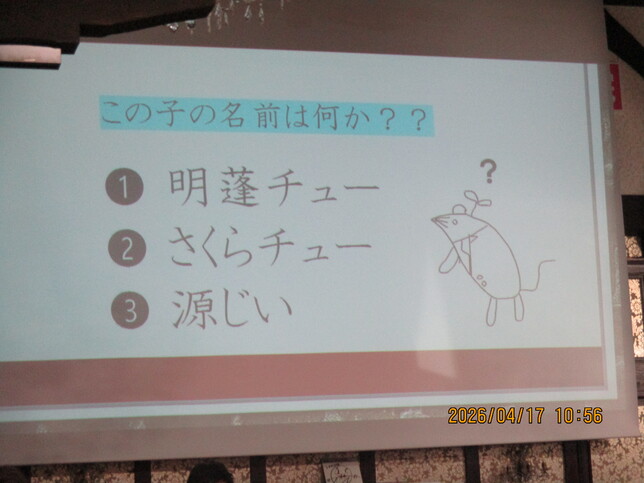 この子の名前は何か？？
❶ 明蓬チュー
❷ さくらチュー
❸ 源じい
?
2026/04/17 10:56